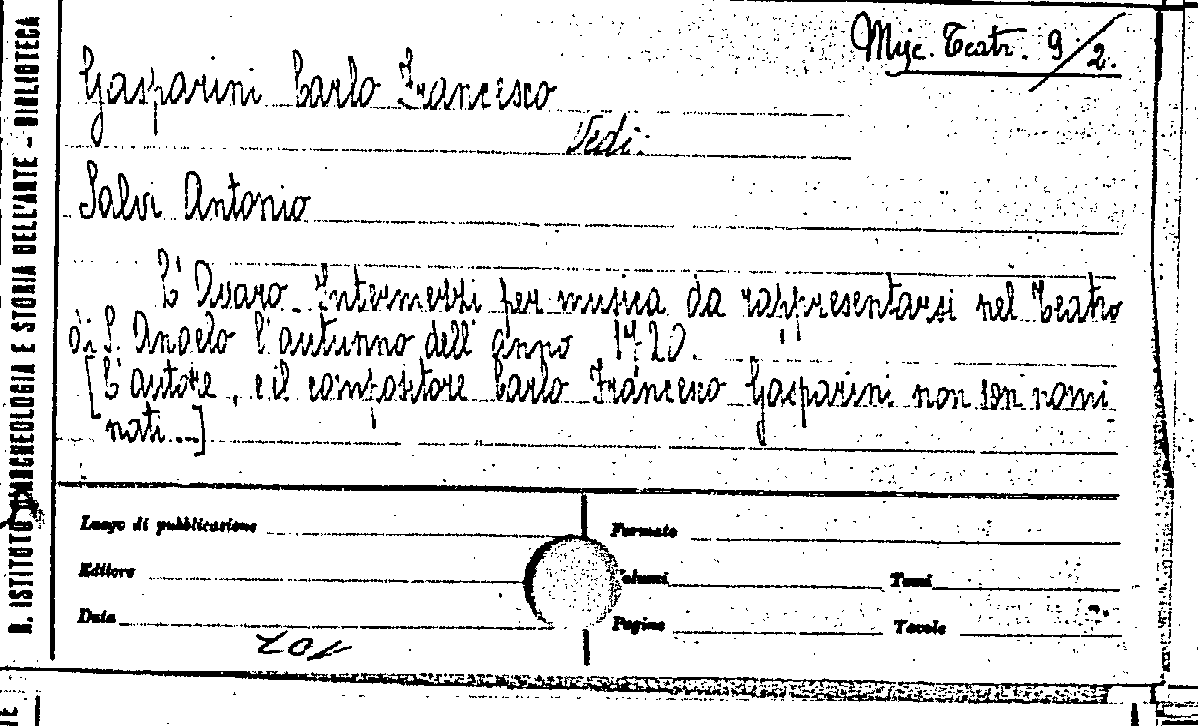 R. ISTITUTO D'ARCHEOLOGIA E STORIA DELL'ARTE - BIBLIOTECA
Misc. Teatr. 9/2.
Gasparini Carlo Francesco
Vedi:
Salvi Antonio
L'Avaro. Intermezzi per musica da rappresentarsi nel Teatro
di S. Angelo l'autunno dell'anno 1720.
[L'autore, e il compositore Carlo Francesco Gasparini non son nomi
nati...]
Luogo di pubblicazione
Formato
Editore
Volumi
Tomi
Data
Pagine
Tavole